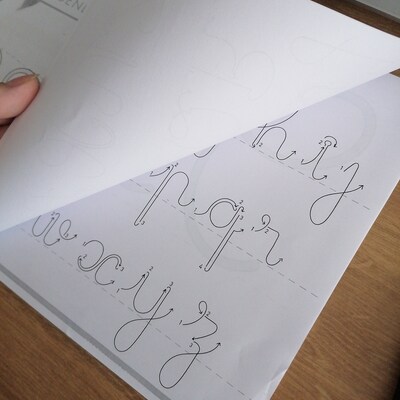 h i j
p q r
w x y z